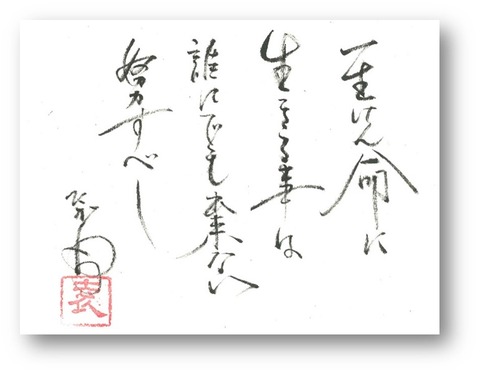 一生けん命に
生きる事は
誰にでも出来ない
努力すべし